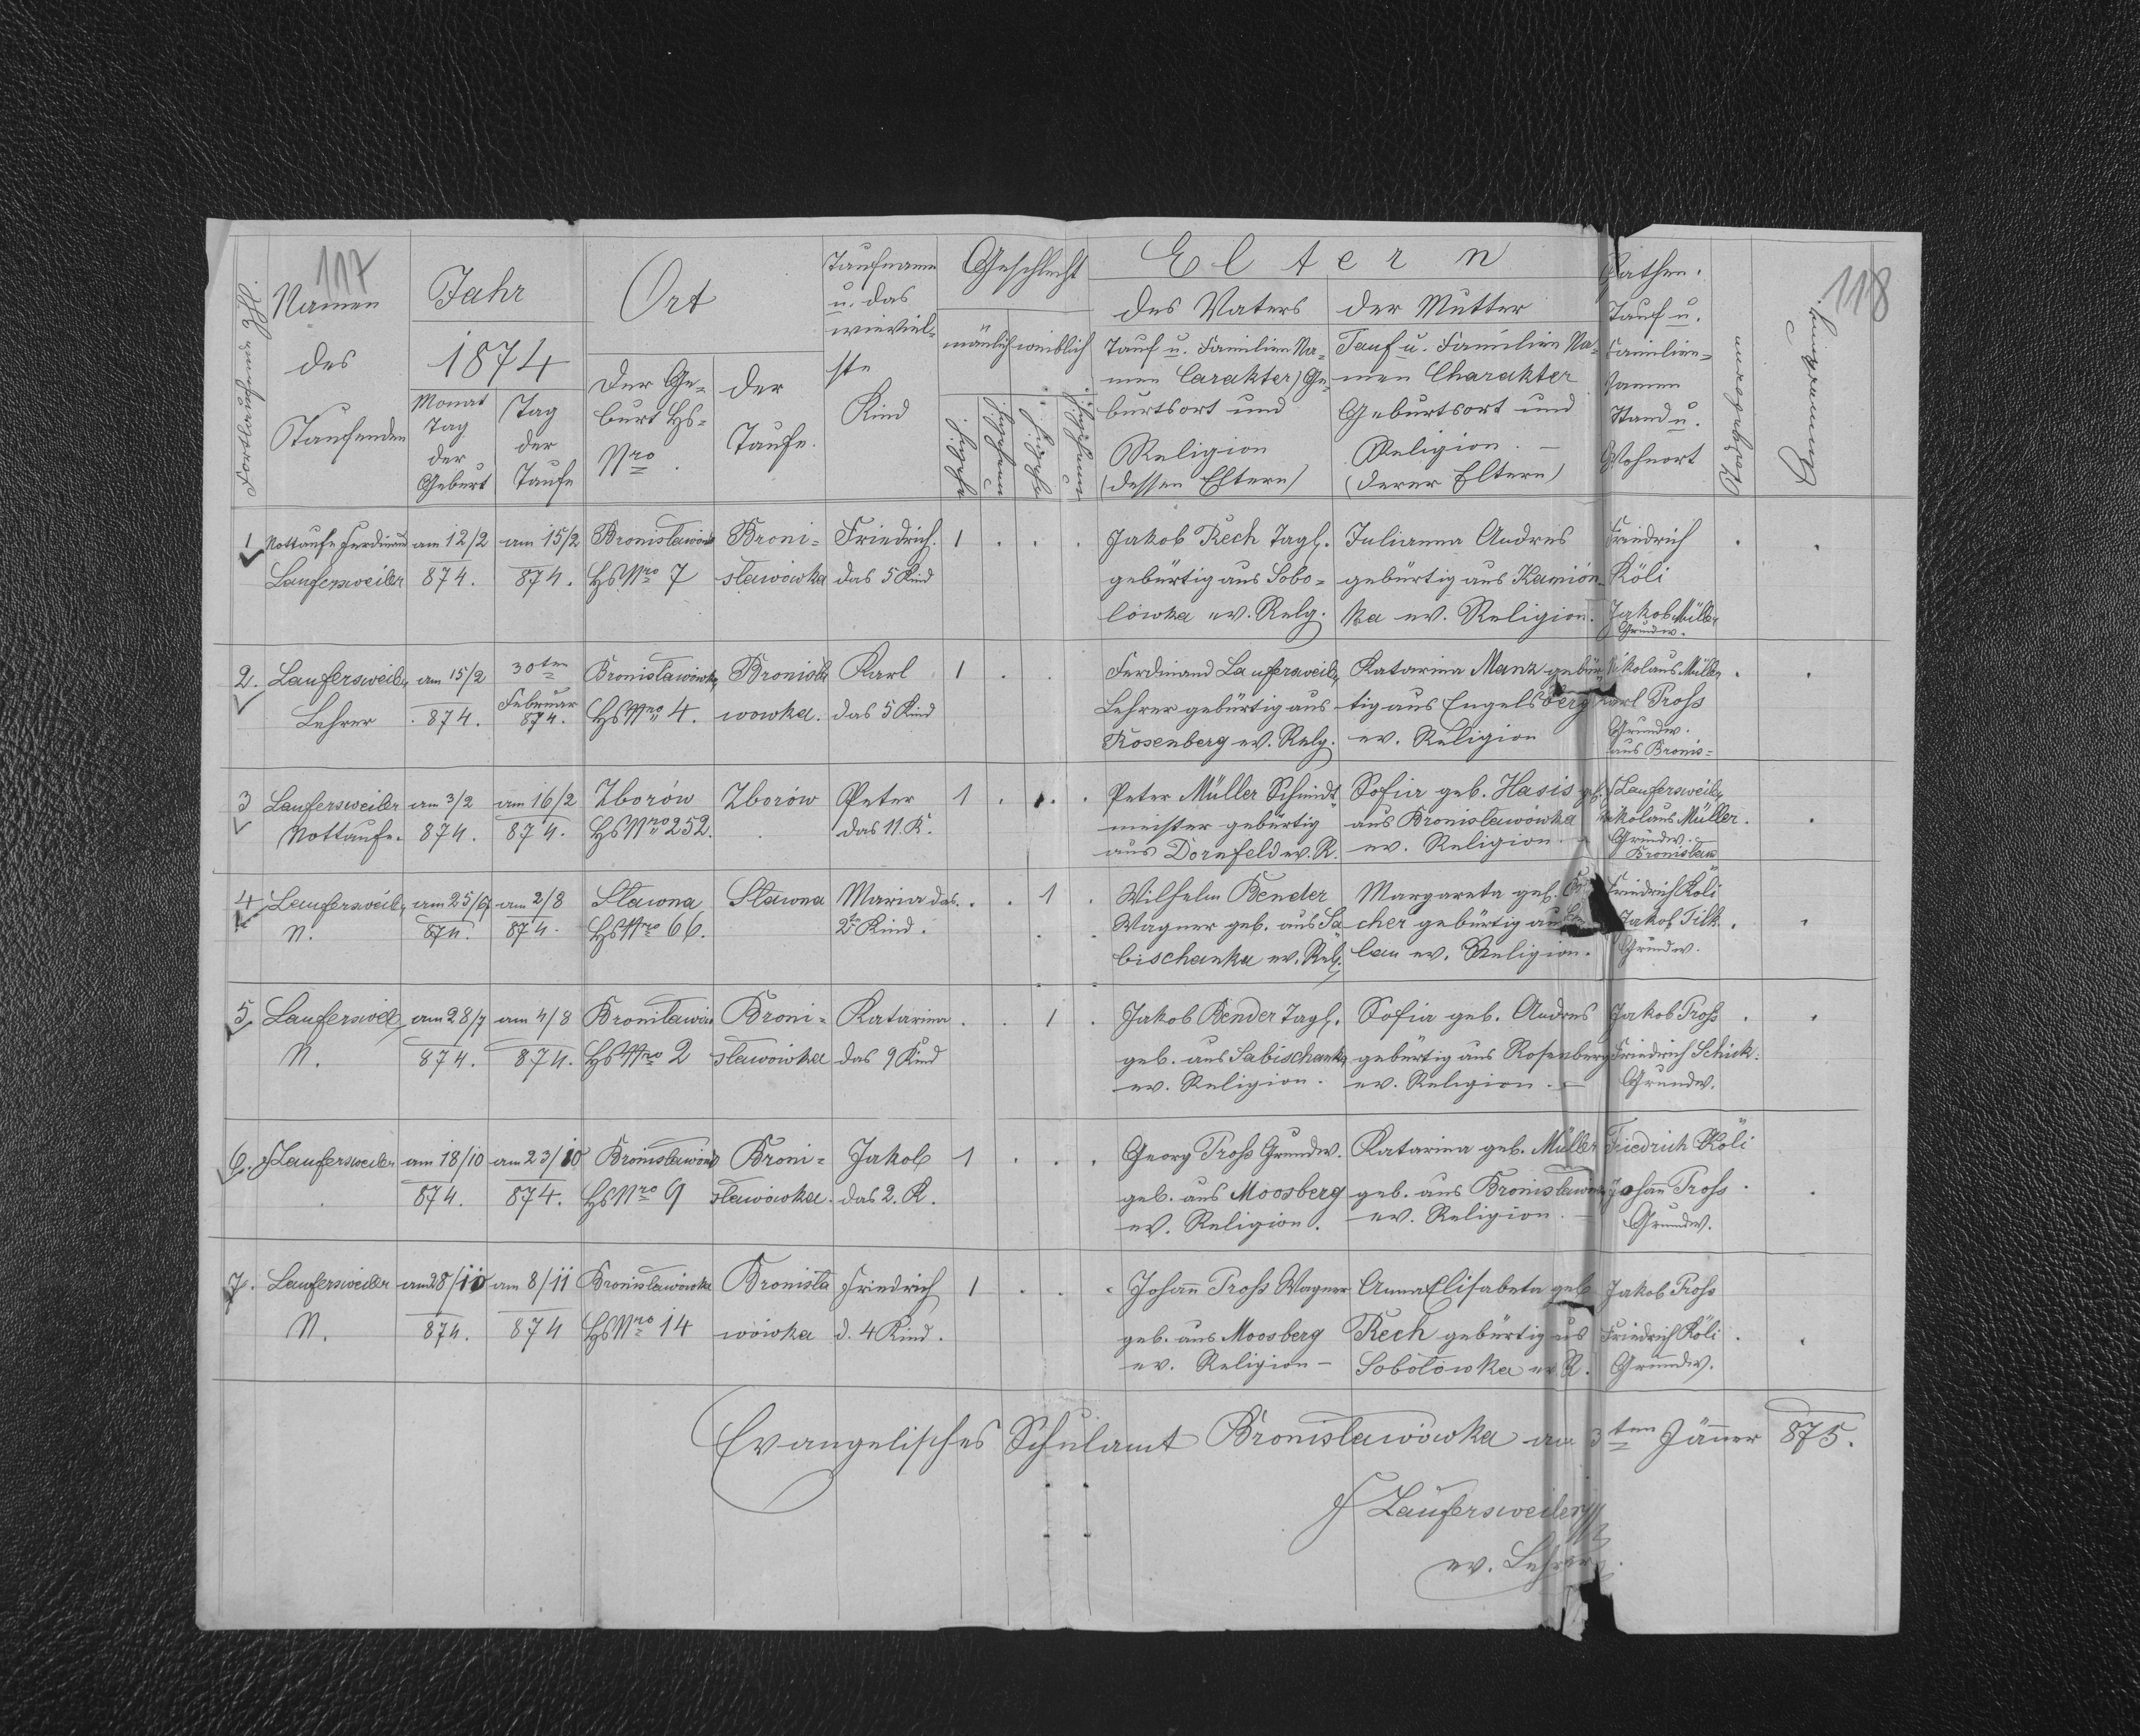 117
118
Fortlaufende No.
Namen
des
Taufenden
Jahr
1874
Monat
Tag
der
Geburt
Tag
der
Taufe
Ort
der Ge-
burt Hs-
Nro.
der
Taufe.
Taufname
u. das
wieviel-
ste
Kind
Geschlecht
mänlich weiblich
Eltern
des Vaters
Tauf u. Familien Na-
men Carakter) Ge-
burtsort und
Religion
(dessen Eltern)
der Mutter
Tauf u. Familien Na-
men Charakter
Geburtsort und
Religion. —
(derer Eltern)
Pathen.
Tauf u.
Familien-
Namen
Stand u.
Wohnort
1
Nottaufe Ferdinand
Laufersweiler
am 12/2
874.
am 15/2
874.
Bronislawówk
Hs Nro 7
Broni-
sławówka
Friedrich.
das 5 Kind
1
Jakob Rech Tagl.
gebürtig aus Sobo-
lówka ev. Relg.
Julianna Andres
gebürtig aus Kamión-
ka ev. Religion.
Friedrich
Köli
Jakob Müller
Grundw.
2.
Laufersweiler
Lehrer
am 15/2
874.
30ten
Februar
874.
Bronisławówka
Hs Nro 4.
Bronisła
wowka.
Karl
das 5 Kind
1
Ferdinand Laufersweiler
Lehrer gebürtig aus
Rosenberg ev. Relg.
Katarina Manz gebür-
tig aus Engelsberg
ev. Religion
Nikolaus Müller
Karl Pross
Grundw.
aus Bronis-
3
Laufersweiler
Nottaufe.
am 3/2
874.
am 16/2
874.
Zborów
Hs Nro 252.
Zborów
Peter
das 11. K.
1
Peter Müller Schmidt-
meister gebürtig
aus Dornfeld ev. R.
Sofia geb. Hasis
aus Bronisławówka
ev. Religion.
F Laufersweiler
Nikolaus Müller.
Grundw.
Bronisław
4
Laufersweiler
N.
874.
am 2/8
874.
Sławna
Hs Nro 66.
Sławna
Maria das
2te Kind.
1
Wilhelm Bender
Wagner geb. aus Sa
bischanka ev. Rel.
Margareta geb.
cher gebürtig aus
lau ev. Religion.
Friedrich Köli
Jakob Filk.
Grundw.
5
N.
am 28/7
874.
am 4/8
874.
Hs Nro 2
Broni-
sławówka
Katarina
das 9 Kind
1
Jakob Bender Tagl.
geb. aus Sabischanka
ev. Religion.
Sofia geb. Andres
gebürtig aus Rosenberg
ev. Religion. —
Jakob Pross
Friedrich Schick.
Grundw.
6.
F Laufersweiler
am 18/10
874.
am 23/10
874.
Bronisławówk
Hs Nro 9
Broni-
sławówka.
Jakob
das 2. K.
1
Georg Pross Grundw.
geb. aus Moosberg
ev. Religion.
Katarina geb. Müller
geb. aus Bronisławów
ev. Religion. —
Friedrich Köli
Johann Pross.
Grundw.
7.
Laufersweiler
N.
am 28/10
874.
am 8/11
874
Bronisławówka
Hs Nro 14
Bronisła
wówka
Friedrich
d. 4 Kind.
1
Johann Pross Wagner
geb. aus Moosberg
ev. Religion —
Anna Elisabeta geb
Rech gebürtig aus
Sobolówka ev. R.
Jakob Pross
Friedrich Köli
Grundw.
Evangelisches Schulamt Bronisławówka am 3ten Jänner 875.
F Laufersweiler
ev. Lehrer